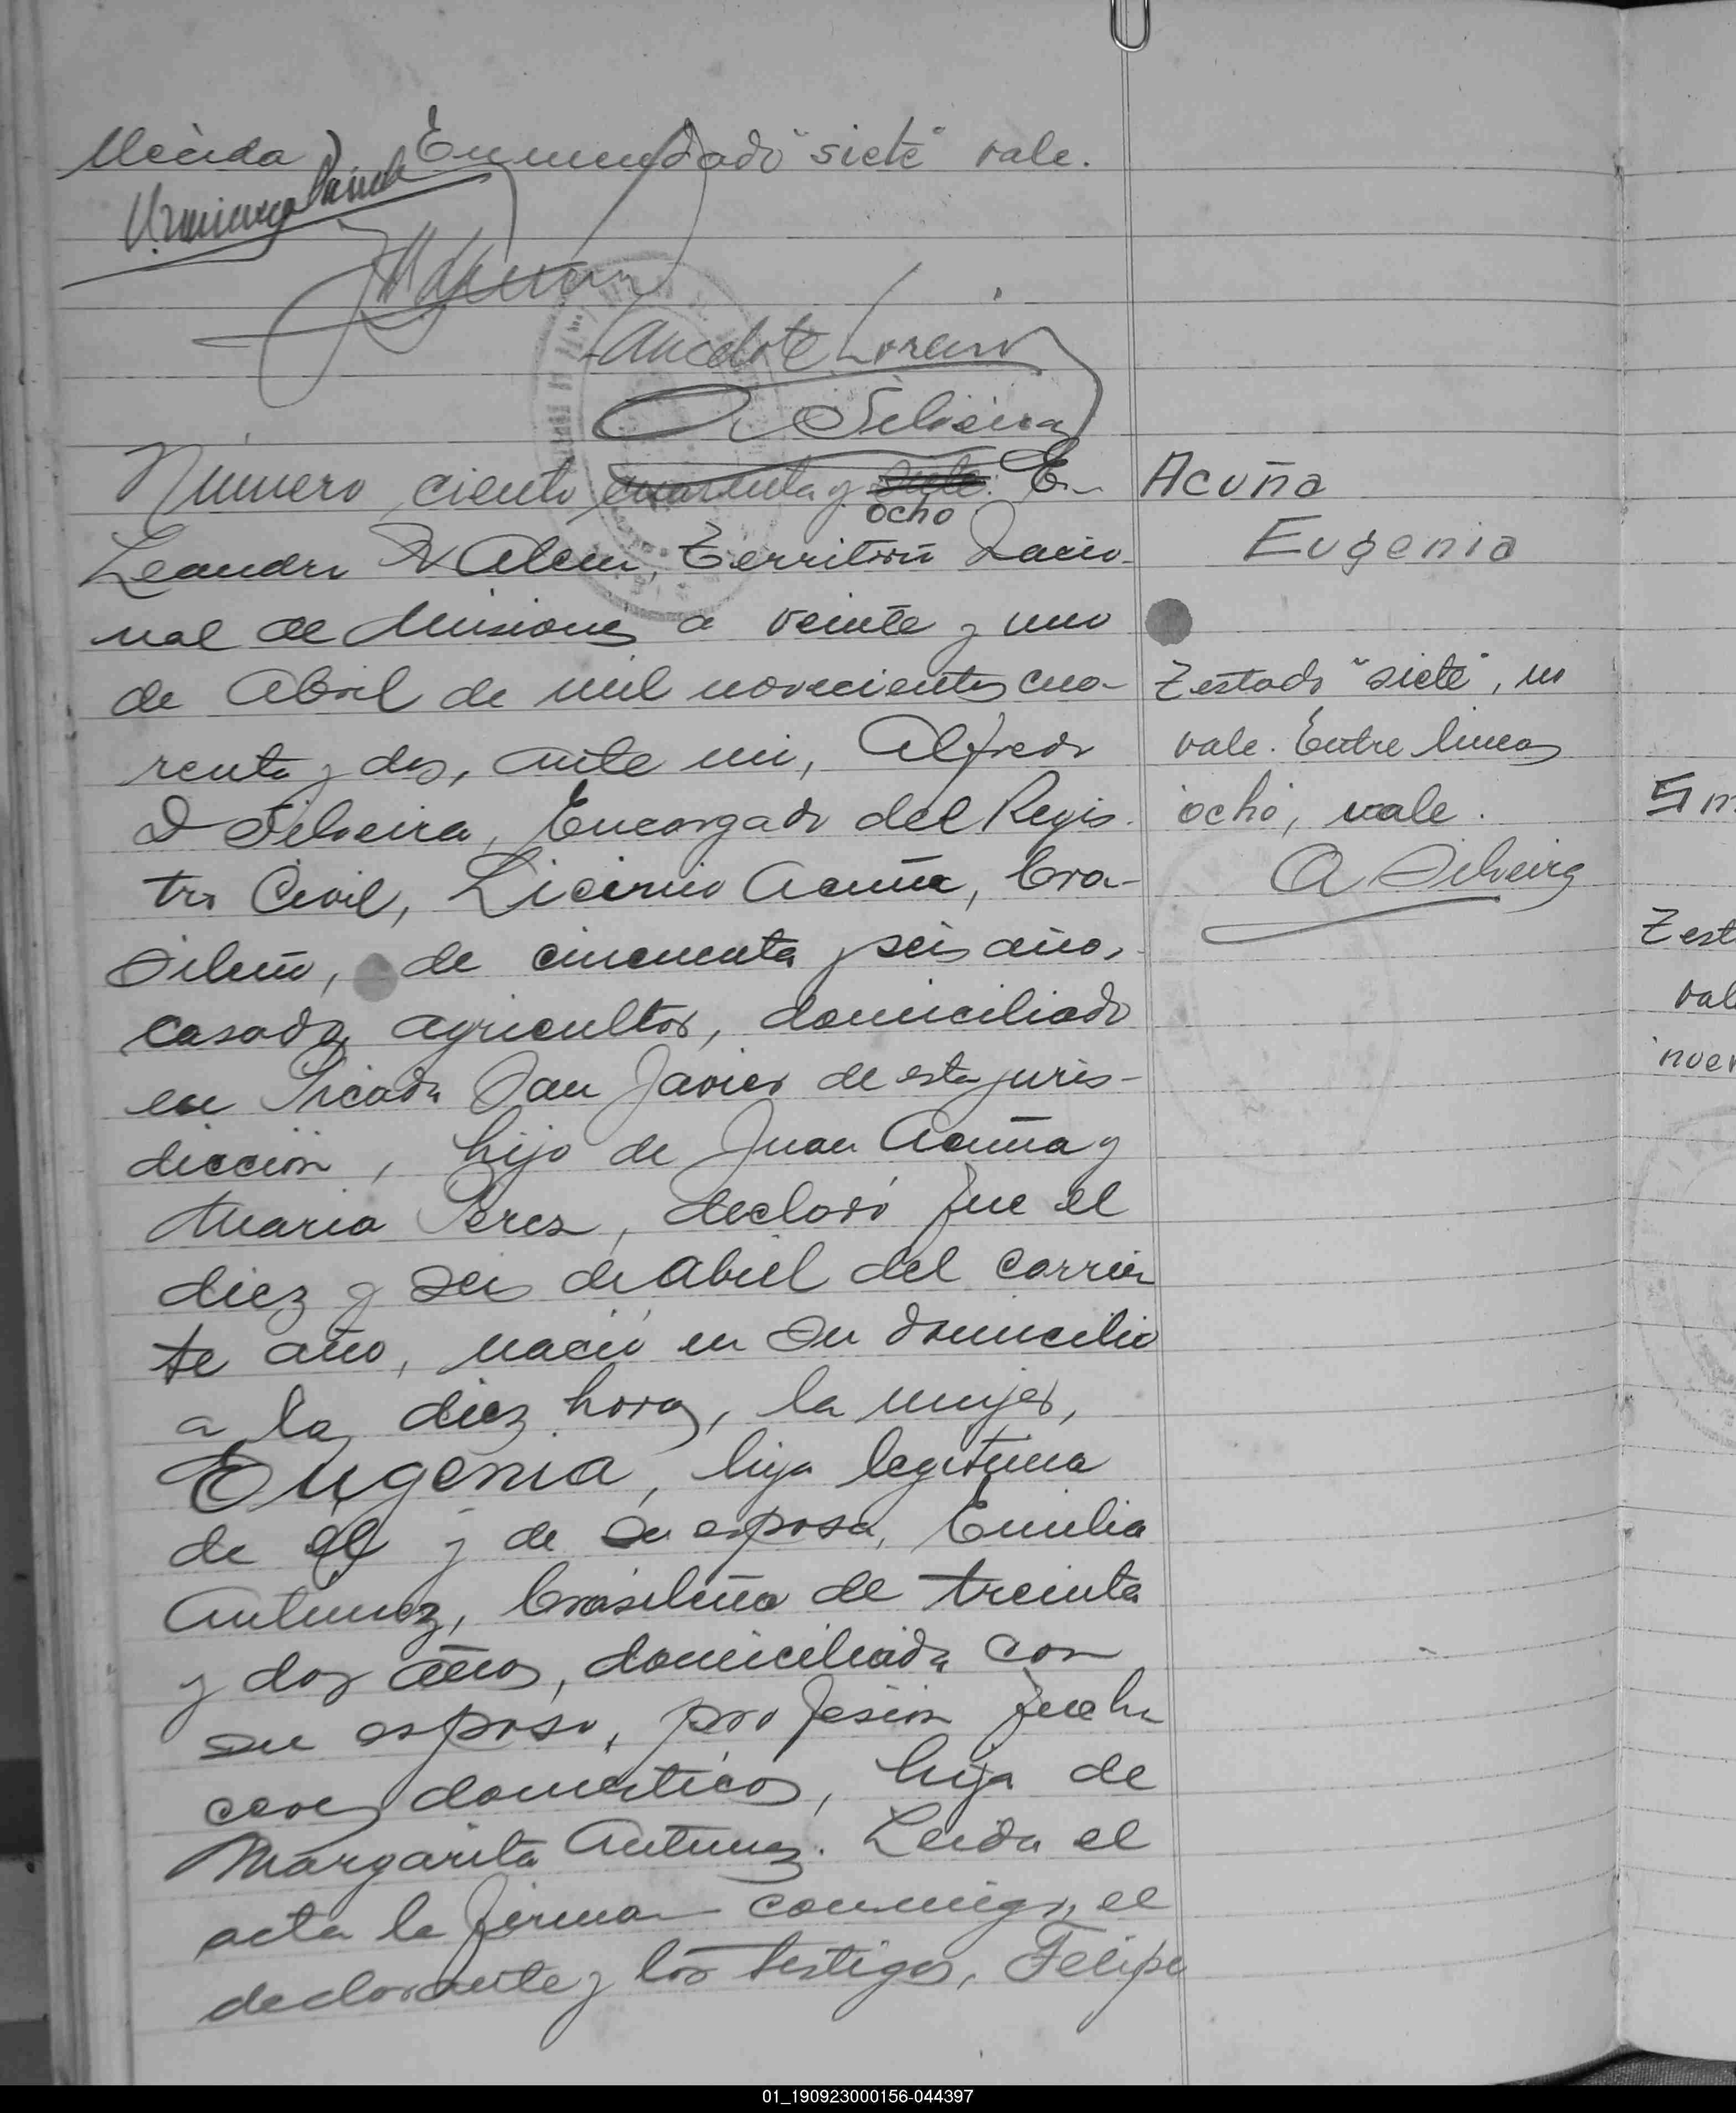 Mérida) Enmendado "siete" vale.
Anedote Loreiro
A Silveira
Número ciento cuarenta y siete. En
ocho
Leandro N Alem, Territorio Nacio-
nal de Misiones a veinte y uno
de Abril de mil novecientos cua-
renta y dos, ante mi, Alfredo
D Silveira, Encargado del Regis-
tro Civil, Licinio Acuña, bra-
sileño, de cincuenta y seis años,
casado, agricultor, domiciliado
en Picada San Javier de esta juris-
dicción, hijo de Juan Acuña y
Maria Perez, declaró que el
diez y seis de Abril del corrien
te año, nació en su domicilio
a las diez horas, la mujer,
Eugenia, hija legitima
de él y de su esposa, Emilia
Antunez, brasileña de treinta
y dos años, domiciliada con
su esposo, profesion queha
ceres domesticos, hija de
Margarita Antunez. Leida el
acta la firman conmigo, el
declarante y los testigos, Felipe
Acuña
Eugenia
Testado "siete", no
vale. Entre lineas
"ocho", vale.
A Silveira
Test
val
nuev
01_190923000156-044397